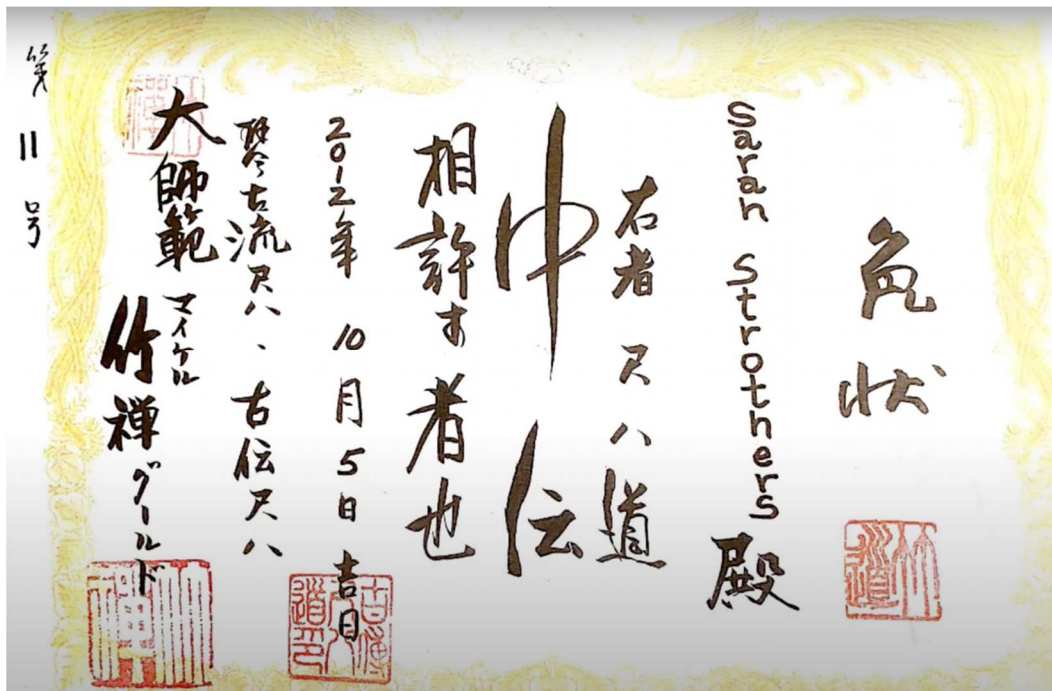 免状
Sarah Strothers 殿
右者 尺八道
中伝
相許す者也
2012年 10月5日 吉日
琴古流尺八、古伝尺八
大師範 マイケル 竹禅グールド
第11号
竹道
竹禅